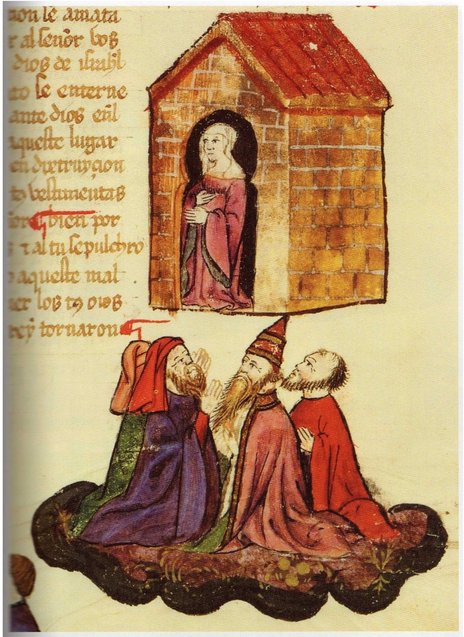 le amata
r al señor vos
dios de israhl
to se enterne
ante dios enl
aqueste lugar
en destruyçion
vestimentas
por
al tu sepulchro
aqueste mal
los tꝰ oios
rey tornaron